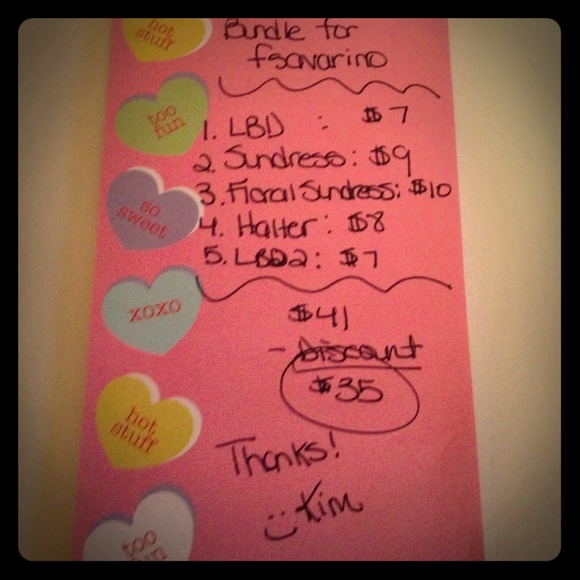 Bundle for
fsavarino
1. LBD : $7
2. Sundress: $9
3. Floral Sundress: $10
4. Halter: $8
5. LBD2: $7
$41
- Discount
$35
Thanks!
:) Kim
hot
stuff
too
fun
so
sweet
xoxo
hot
stuff
too
fun